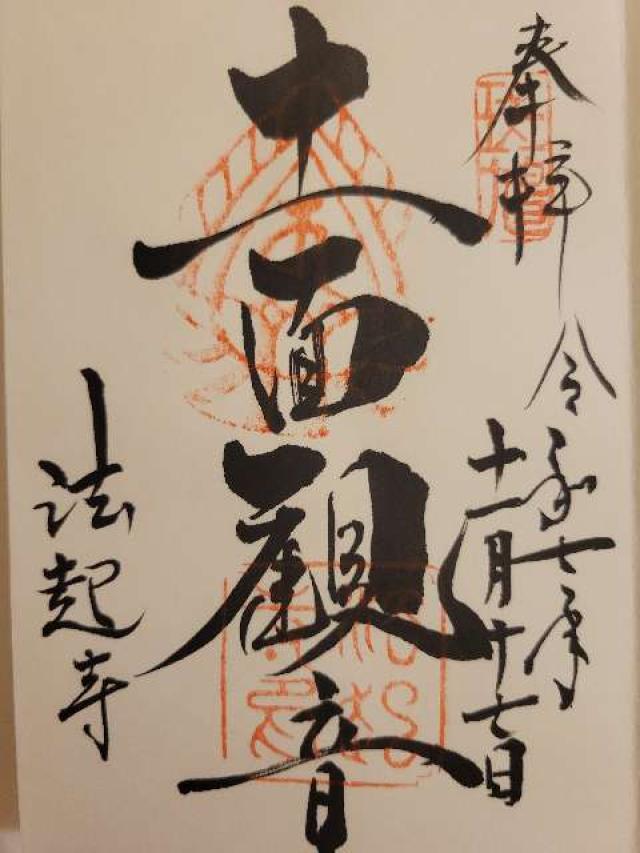 奉拝
令和七年
十一月十七日
十一面観音
法起寺